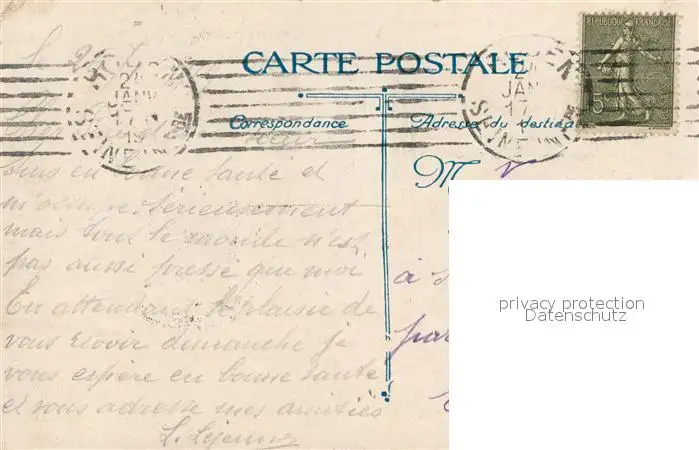 RÉPUBLIQUE FRANÇAISE
CARTE POSTALE
24
JANV
SEINE INF
24
JAN
17
SEINE INF
15
Correspondance
Adresse du destina
M
sœur
suis en bonne santé et
m'occupe sérieusement
mais tout le monde n'est
pas aussi pressé que moi
En attendant le plaisir de
vous revoir dimanche je
vous espère en bonne santé
et vous adresse mes amitiés
L. Lejeune
à
par
privacy protection
Datenschutz